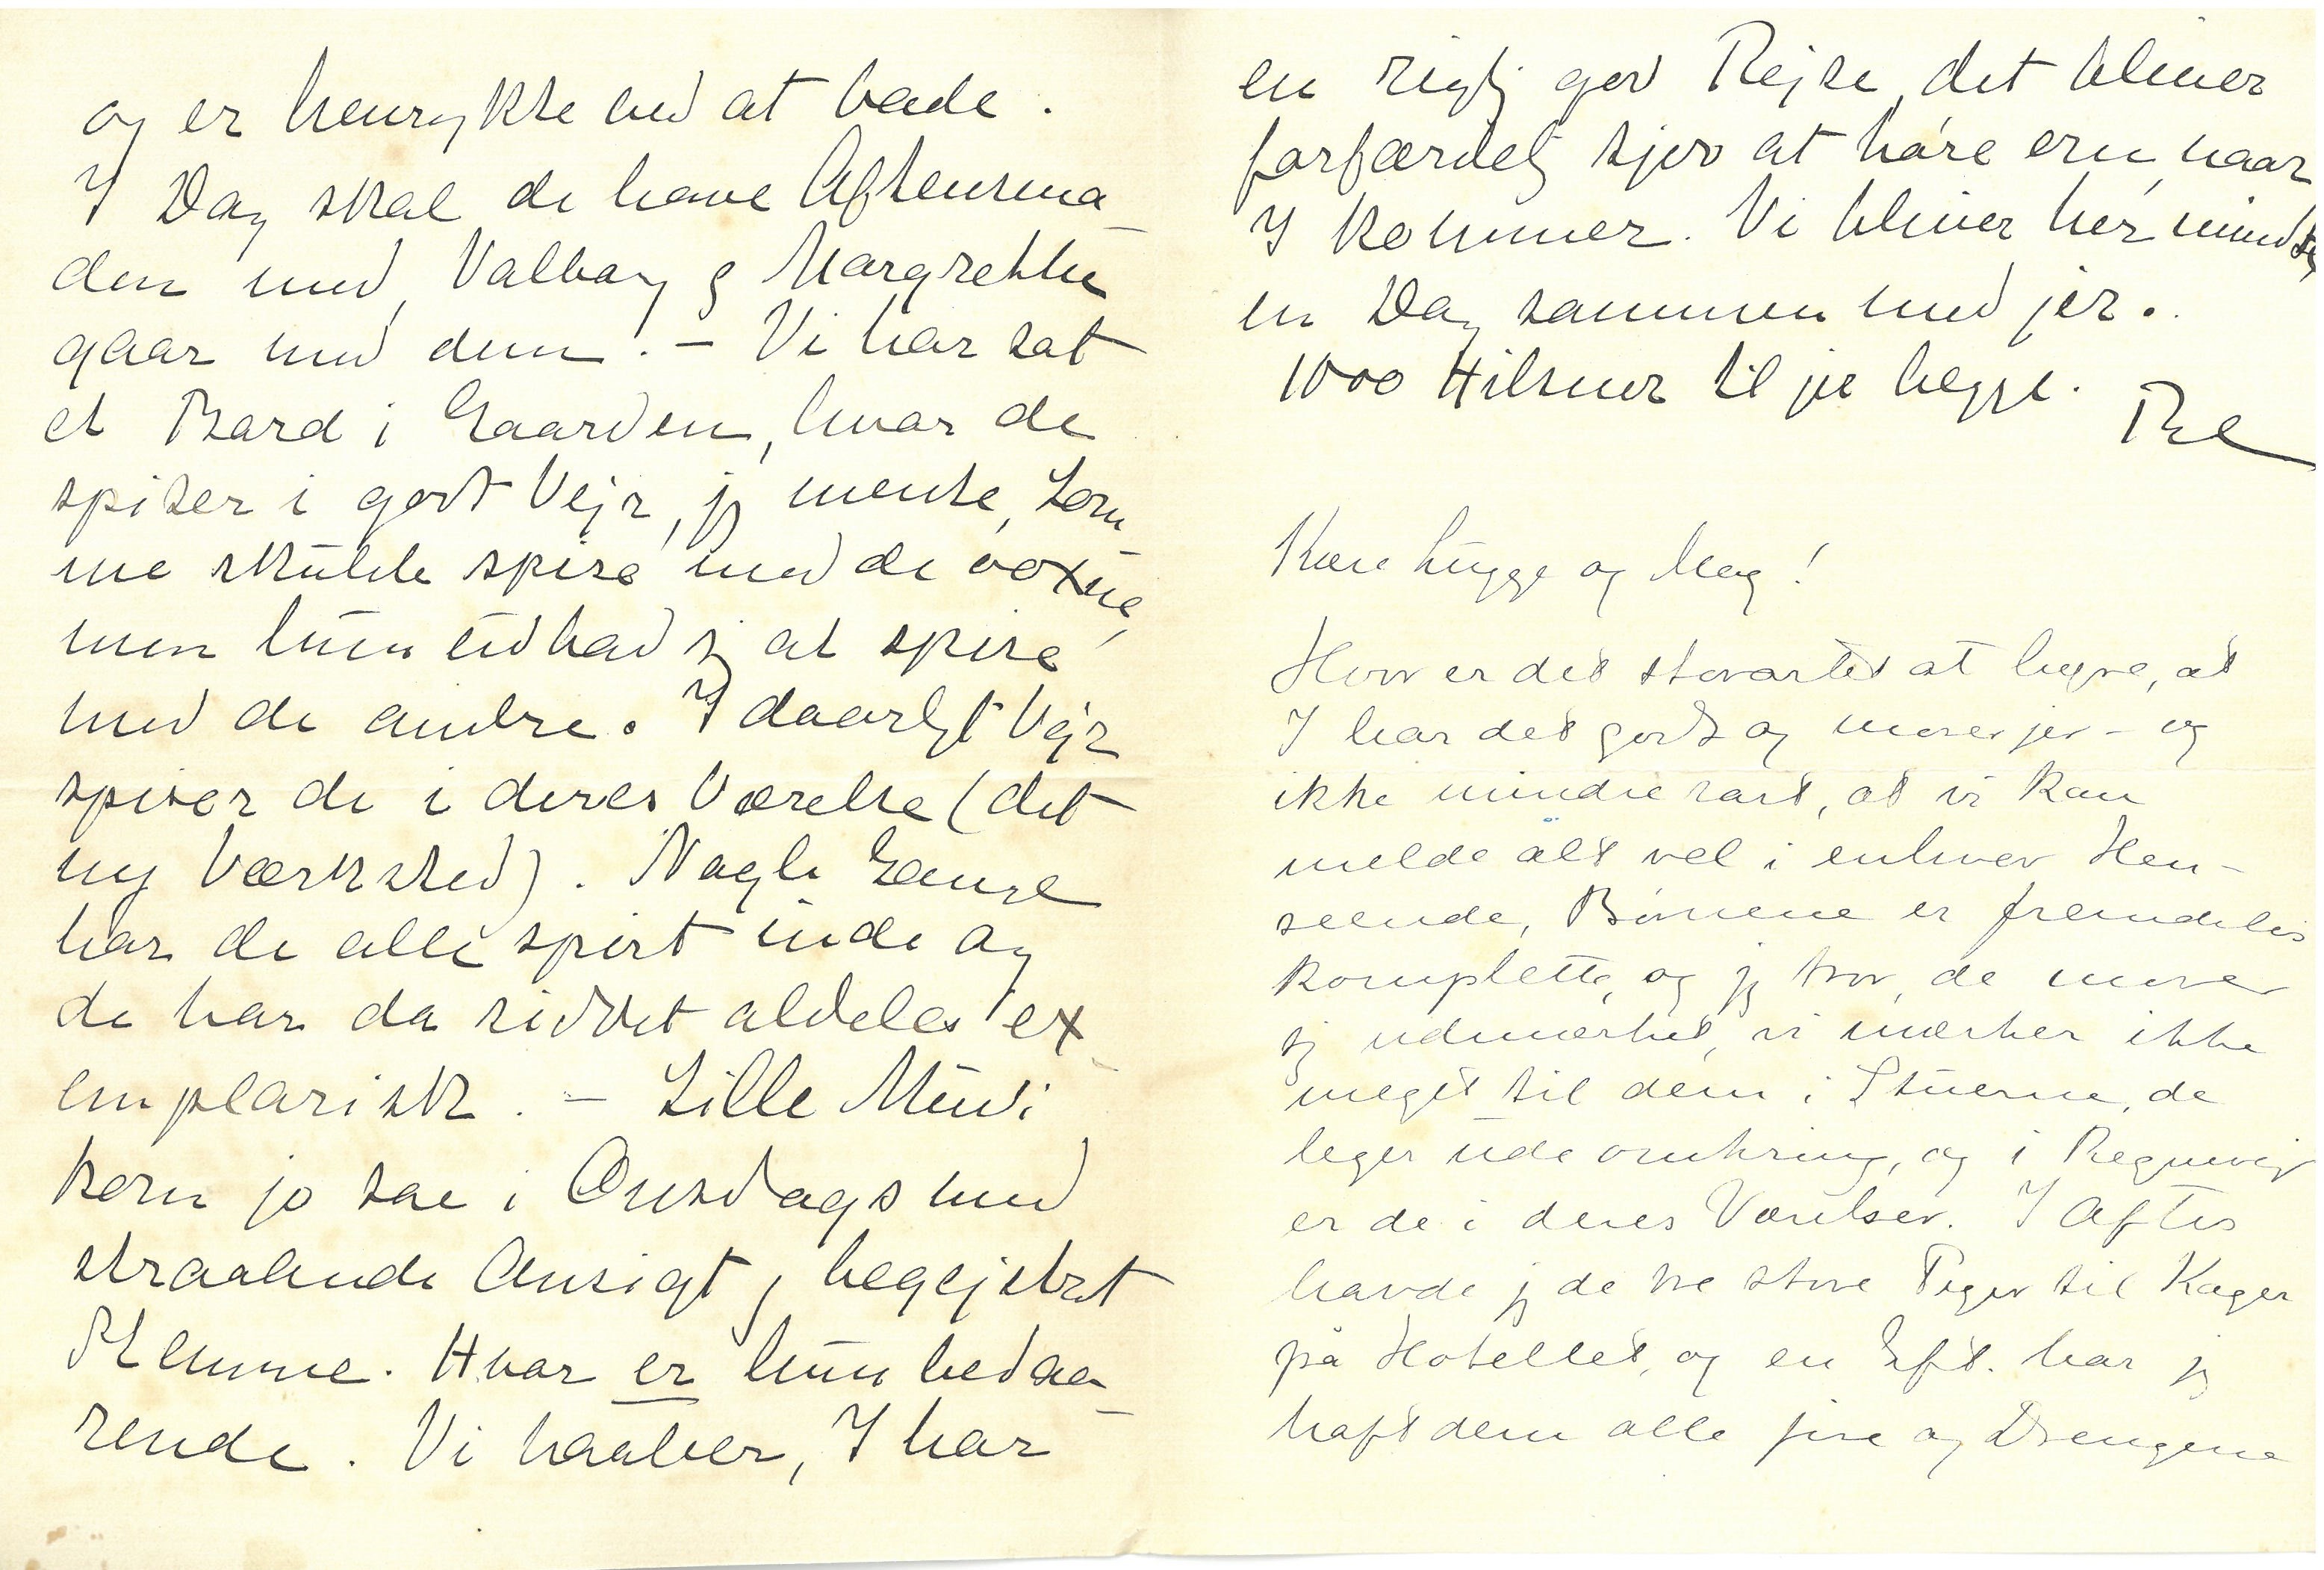 og er henrykte ved at bade.
I Dag skal de have Aftensma-
den med, Valborg og Margrethe
gaar med dem. – Vi har sat
et Bord i Gaarden, hvor de
spiser i godt Vejr, jeg mente, Lom-
me skulde spise med de voxne,
men hun udbad sig at spise
med de andre. I daarligt Vejr
spiser de i deres Værelse (det
ny Værksted). Nogle Gange
har de alle spist inde og
de har da siddet aldeles ex-
emplarisk. – Lille Mudi
kom jo saa i Onsdags med
straalende Ansigt, begejstret
Stemme. Hvor er hun bedaa-
rende. Vi haaber, I har
en rigtig god Rejse, det bliver
forfærdelig sjov at høre om, naar
I kommer. Vi bliver her mindst
en Dag sammen med jer.
1000 Hilsner til jer begge.
Kære Lugge og Mag!
Hvor er det storartet at høre, at
I har det godt og morer jer – og
ikke mindre rart, at vi kan
melde alt vel i enhver Hen-
seende, Børnene er fremdeles
komplette, og jeg tror, de morer
sig udmærket, vi mærker ikke
meget til dem i Stuerne, de
leger ude omkring, og i Regnvejr
er de i deres Værelser. I Aftes
havde jeg de tre store Piger til Kager
på Hotellet, og en Eft. har jeg
haft dem alle fire og Drengene